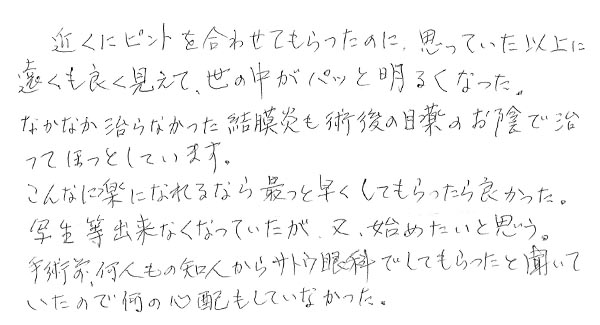 近くにピントを合わせてもらったのに、思っていた以上に
遠くも良く見えて、世の中がパッと明るくなった。
なかなか治らなかった結膜炎も術後の目薬のお陰で治
ってほっとしています。
こんなに楽になれるなら最っと早くしてもらったら良かった。
写生等出来なくなっていたが、又、始めたいと思う。
手術前、何人もの知人からサトウ眼科でしてもらったと聞いて
いたので何の心配もしていなかった。